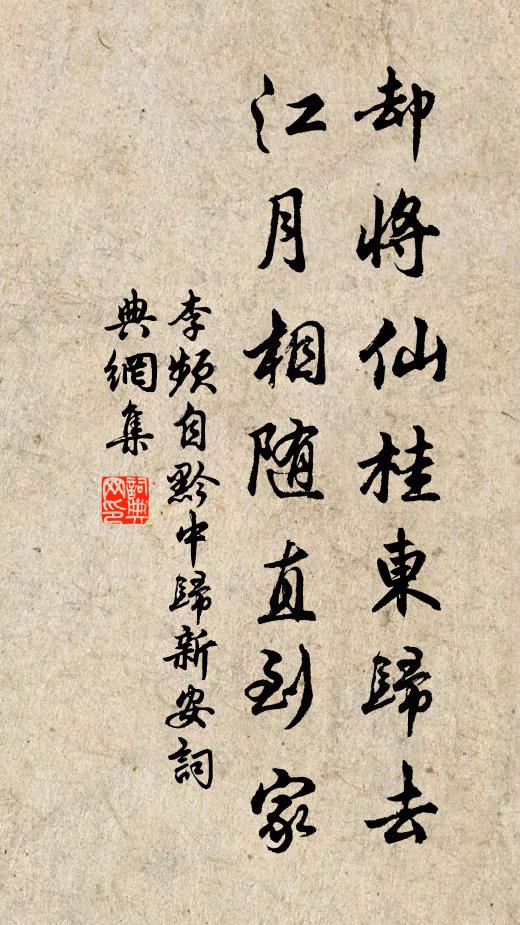 却將仙桂東歸去
江月相随直到家
李頻自黔中歸新安詞
典網集
詞典網印